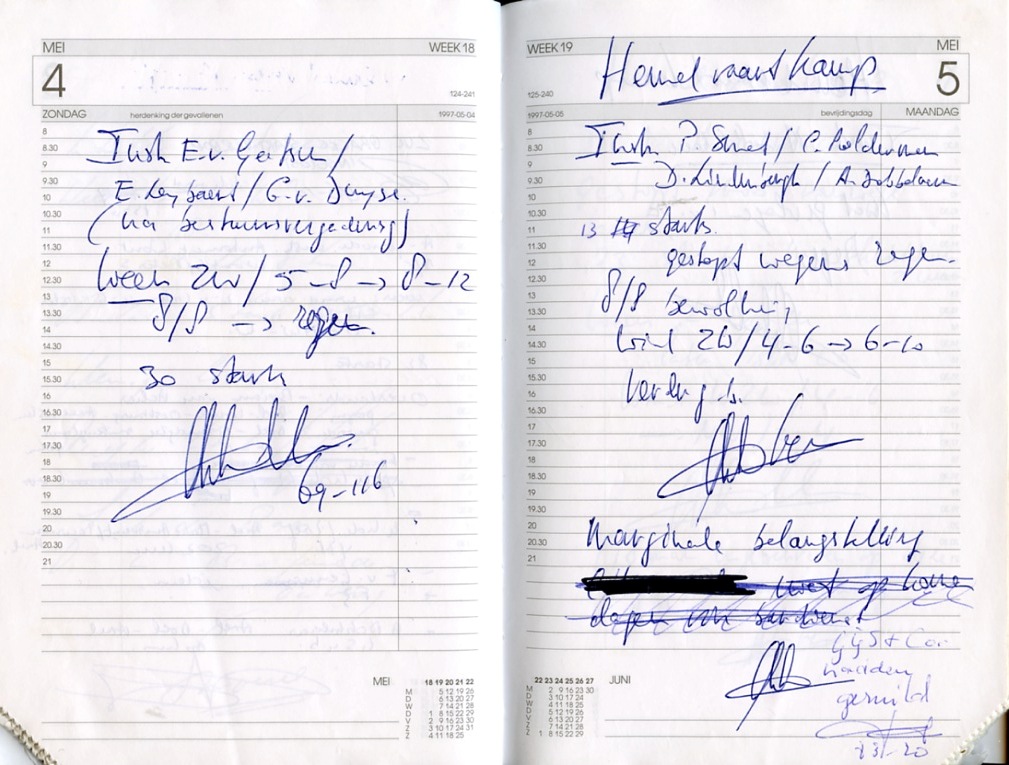 MEI WEEK 18
4
124-241
ZONDAG herdenking der gevallenen 1997-05-04
8
8.30
9
9.30
10
10.30
11
11.30
12
12.30
13
13.30
14
14.30
15
15.30
16
16.30
17
17.30
18
18.30
19
19.30
20
20.30
21
E.v.
/ G.v. Duyse.
(na bestuursvergadering)
ZW / 5-8 → 8-12
8/8 → regen.
30 starts
69-116
MEI
18 19 20 21 22
M 5 12 19 26
D 6 13 20 27
W 7 14 21 28
D 1 8 15 22 29
V 2 9 16 23 30
Z 3 10 17 24 31
Z 4 11 18 25
WEEK 19 MEI
Hemelvaartkamp.
5
125-240
1997-05-05 bevrijdingsdag MAANDAG
8
8.30
9
9.30
10
10.30
11
11.30
12
12.30
13
13.30
14
14.30
15
15.30
16
16.30
17
17.30
18
18.30
19
19.30
20
20.30
21
P. Smet / C. Polderman
D. Lindenbergh / A. Dobbelaere
13 starts.
gestopt wegens regen.
8/8 bewolking
wind ZW / 4-6 → 6-10
Marginale belangstelling
moet op
dagen
Gijs + Cor
hadden
geruild
22 23 24 25 26 27
JUNI
M 2 9 16 23 30
D 3 10 17 24
W 4 11 18 25
D 5 12 19 26
V 6 13 20 27
Z 7 14 21 28
Z 1 8 15 22 29